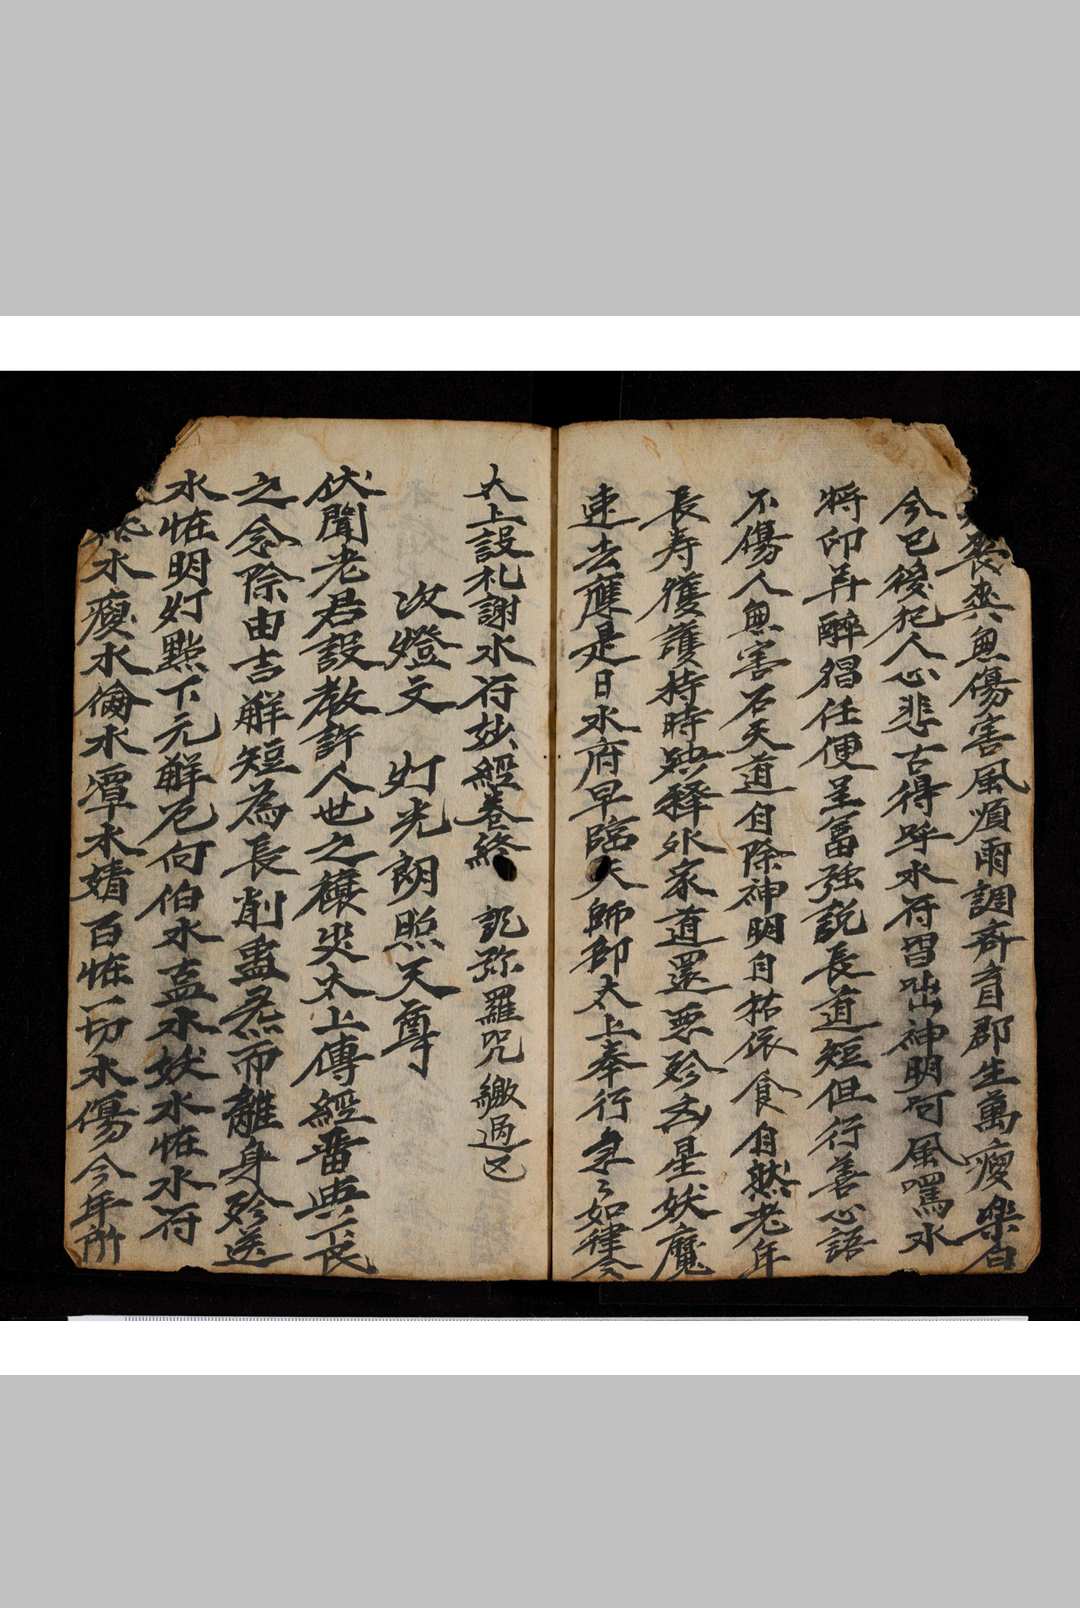 喪無傷害風順雨調斉育郡生萬瘦樂自
今已後犯人心悲古得呼水符冒咄神明可風罵水
将印并醉猖任便呈冨強説長道短但行善心語
不傷人無害石天道自除神明自祐依食自然老年
長寿獲護持時災釋外家道還要殄去星妖魔
速去應是日水府早臨天師郎太上奉行急々如律令
太上設礼謝水符妙經卷終 説弥羅咒繳過已
次燈文 灯光朗照天尊
伏聞老君設教許人世之禳災太上傳經畨典長
之念除由吉解短為長削盡為而離身殄送
水怪明灯點下元解厄何伯水盂水妖水怪水符
水瘦水倫水潭水㜍百怪一切水傷今年所